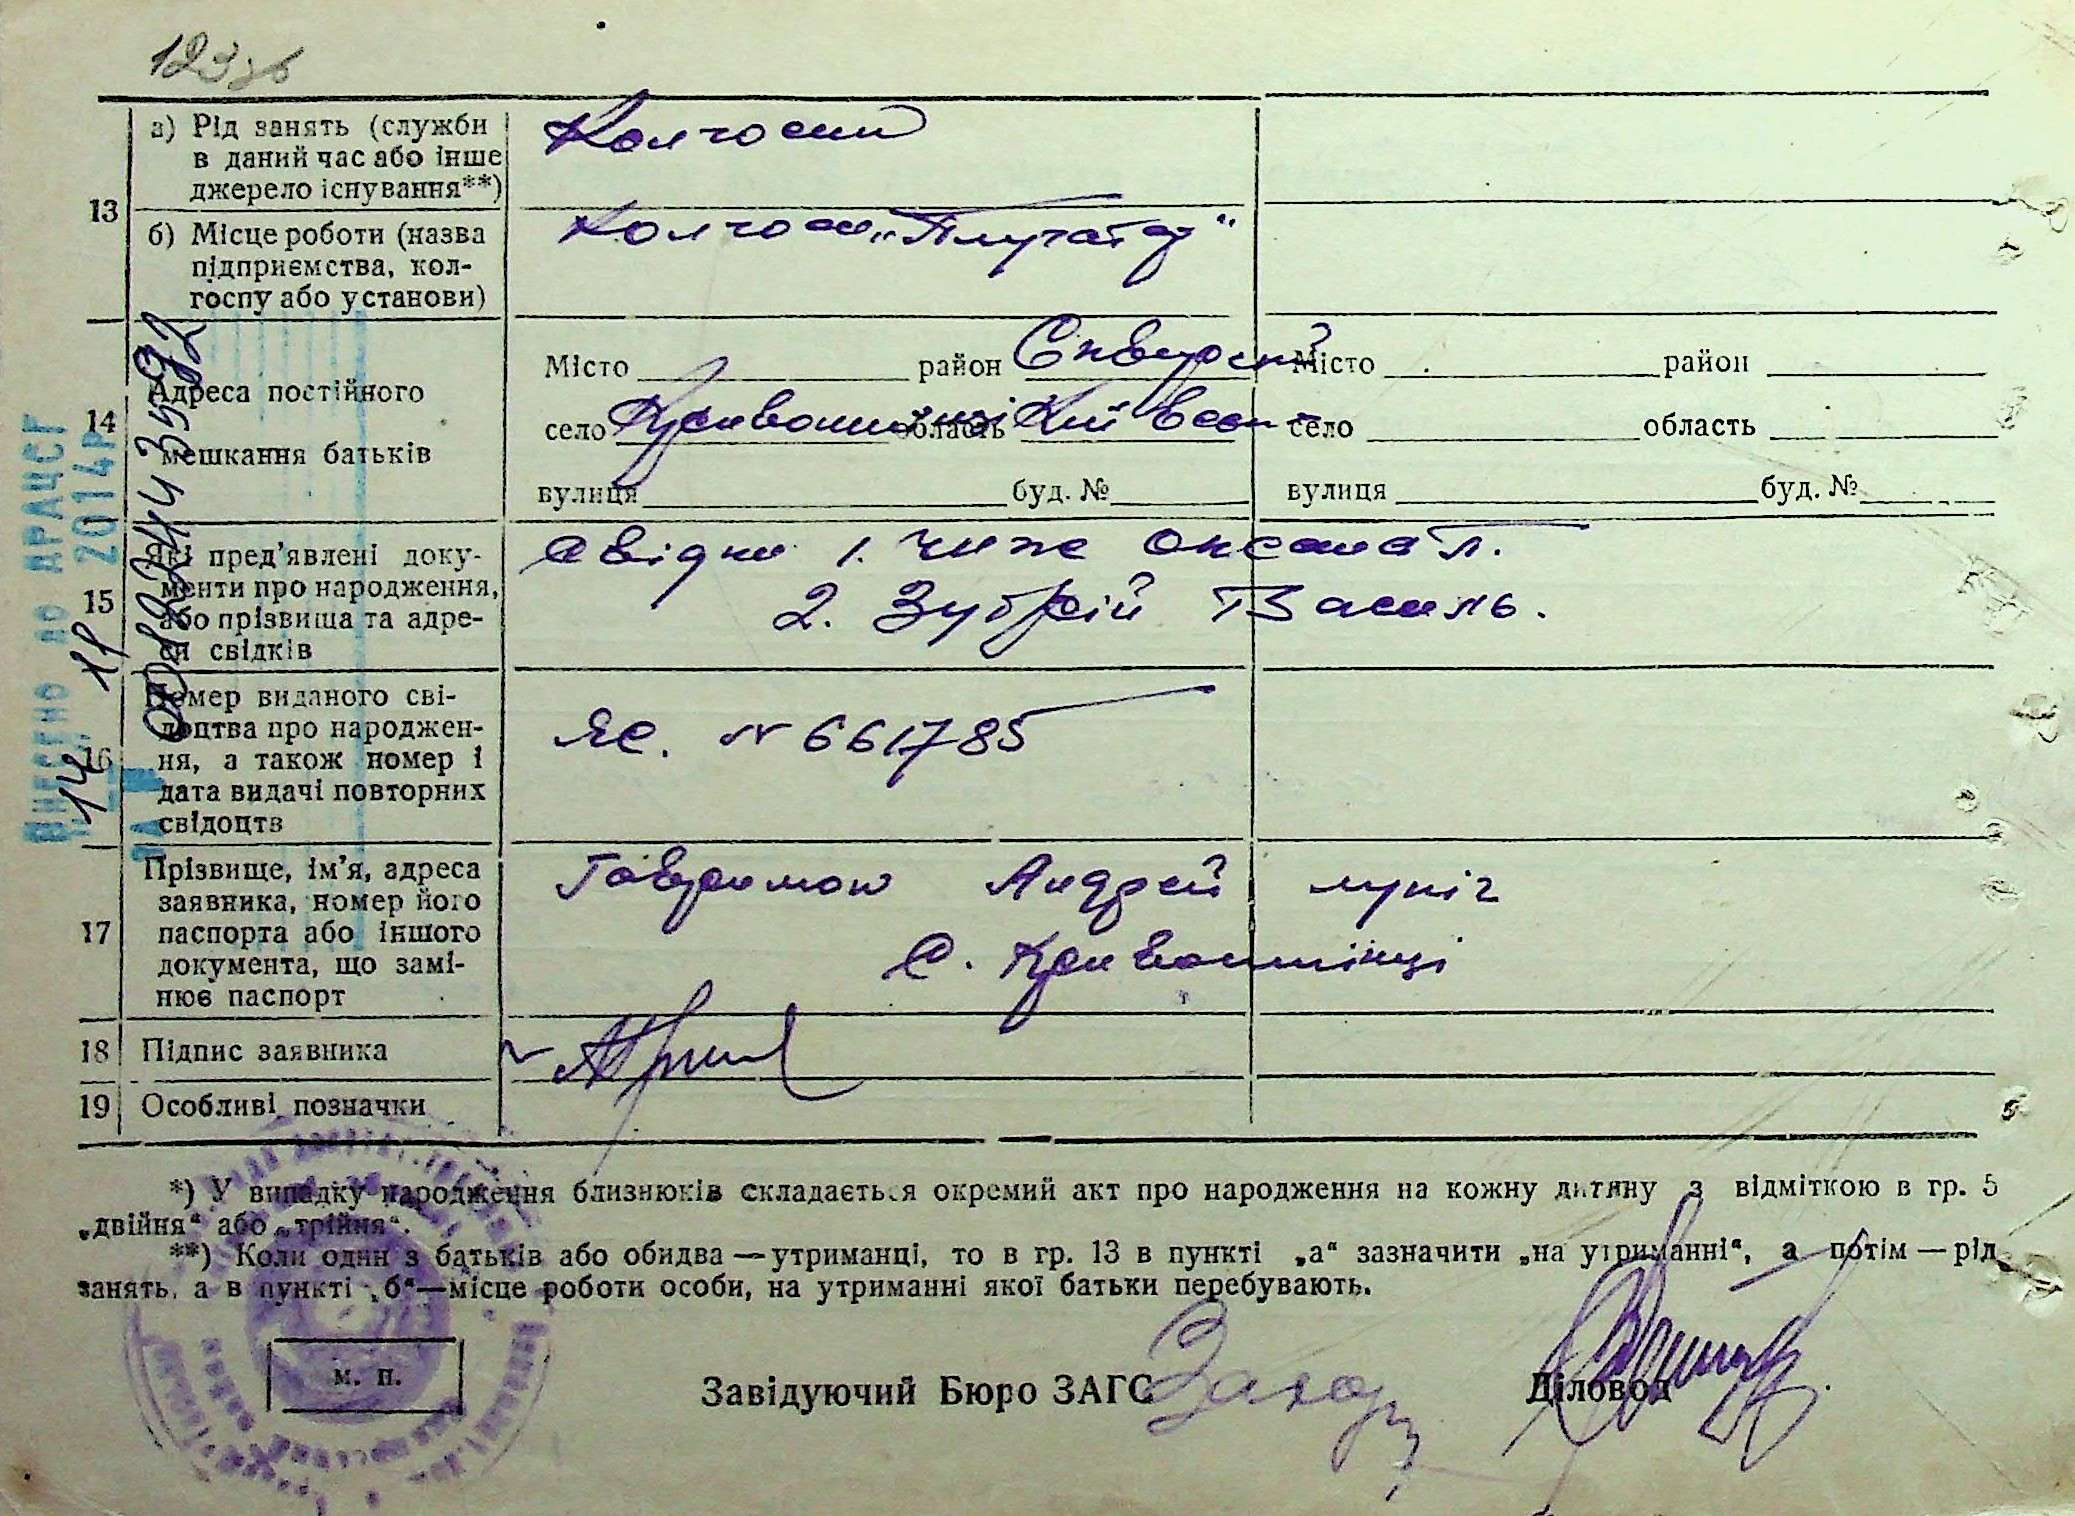 123зв
13
а) Рід занять (служби
в даний час або інше
джерело існування**)
Колгосп
б) Місце роботи (назва
підприємства, кол-
госпу або установи)
Колгосп „Плугатар“
14
Адреса постійного
мешкання батьків
Місто район Сквирский
село Кривошиїнці область Київськ
вулиця буд. №
Місто район
село область
вулиця буд. №
15
Які пред'явлені доку-
менти про народження,
або прізвища та адре-
си свідків
Свідки 1. Чиж Оксана П.
2. Зубрій Василь.
16
Номер виданого сві-
доцтва про народжен-
ня, а також номер і
дата видачі повторних
свідоцтв
ЯС. N 661785
17
Прізвище, ім'я, адреса
заявника, номер його
паспорта або іншого
документа, що замі-
нює паспорт
Гаврилюк Андрей
С. Кривошиїнці
18
Підпис заявника
19
Особливі позначки
Внесено до ДРАЦСГ
14 11 2014р
*) У випадку народження близнюків складається окремий акт про народження на кожну дитину з відміткою в гр. 5
„двійня“ або „трійня“.
**) Коли один з батьків або обидва — утриманці, то в гр. 13 в пункті „а“ зазначити „на утриманні“, а потім — рід
занять, а в пункті „б“—місце роботи особи, на утриманні якої батьки перебувають.
м. п.
Завідуючий Бюро ЗАГС
Діловод